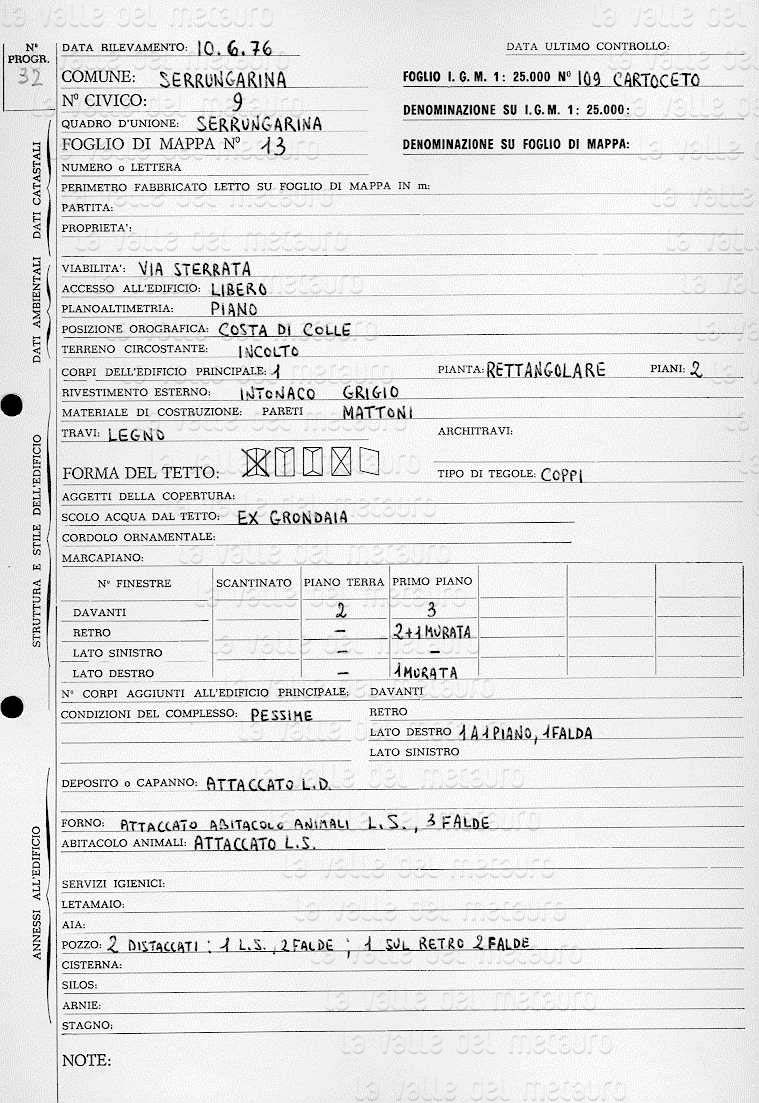 N° PROGR.
32
DATA RILEVAMENTO: 10.6.76
DATA ULTIMO CONTROLLO:
COMUNE: SERRUNGARINA
FOGLIO I. G. M. 1: 25.000 N° 109 CARTOCETO
N° CIVICO: 9
DENOMINAZIONE SU I. G. M. 1: 25.000:
QUADRO D'UNIONE: SERRUNGARINA
FOGLIO DI MAPPA N° 13
DENOMINAZIONE SU FOGLIO DI MAPPA:
DATI CATASTALI
NUMERO o LETTERA
PERIMETRO FABBRICATO LETTO SU FOGLIO DI MAPPA IN m:
PARTITA:
PROPRIETA':
DATI AMBIENTALI
VIABILITA': VIA STERRATA
ACCESSO ALL'EDIFICIO: LIBERO
PLANOALTIMETRIA: PIANO
POSIZIONE OROGRAFICA: COSTA DI COLLE
TERRENO CIRCOSTANTE: INCOLTO
STRUTTURA E STILE DELL'EDIFICIO
CORPI DELL'EDIFICIO PRINCIPALE: 1 PIANTA: RETTANGOLARE PIANI: 2
RIVESTIMENTO ESTERNO: INTONACO GRIGIO
MATERIALE DI COSTRUZIONE: PARETI MATTONI
TRAVI: LEGNO ARCHITRAVI:
FORMA DEL TETTO: TIPO DI TEGOLE: COPPI
AGGETTI DELLA COPERTURA:
SCOLO ACQUA DAL TETTO: EX GRONDAIA
CORDOLO ORNAMENTALE:
MARCAPIANO:
N° FINESTRE SCANTINATO PIANO TERRA PRIMO PIANO
DAVANTI 2 3
RETRO – 2+1 MURATA
LATO SINISTRO – –
LATO DESTRO – 1 MURATA
N° CORPI AGGIUNTI ALL'EDIFICIO PRINCIPALE: DAVANTI
CONDIZIONI DEL COMPLESSO: PESSIME RETRO
LATO DESTRO 1 A 1 PIANO, 1 FALDA
LATO SINISTRO
ANNESSI ALL'EDIFICIO
DEPOSITO o CAPANNO: ATTACCATO L.D.
FORNO: ATTACCATO ABITACOLO ANIMALI L.S., 3 FALDE
ABITACOLO ANIMALI: ATTACCATO L.S.
SERVIZI IGIENICI:
LETAMAIO:
AIA:
POZZO: 2 DISTACCATI: 1 L.S., 2 FALDE; 1 SUL RETRO 2 FALDE
CISTERNA:
SILOS:
ARNIE:
STAGNO:
NOTE:
la valle del metauro